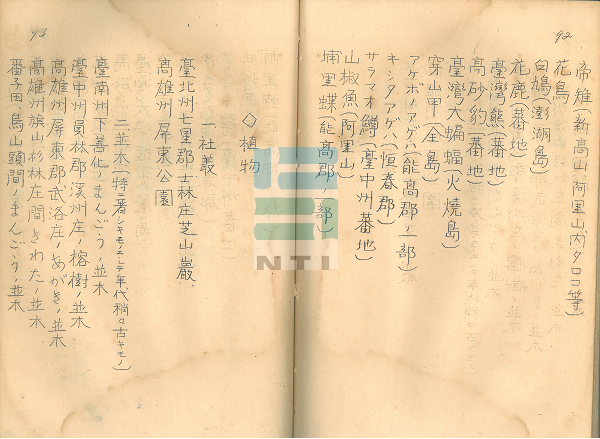 92
帝雉(新高山、阿里山、内タロコ等)
花鳥
白鳩(澎湖島)
花鹿(蕃地)
臺灣熊(蕃地)
高砂豹(蕃地)
臺灣大蝙蝠(火燒島)
穿山甲(全島)
アケボノアゲハ(能高郡ノ一部)
キシタアゲハ(恒春郡)
サラマオ鱒(臺中州蕃地)
山椒魚(阿里山)
埔里蝶(能高郡ノ一部)
◇植物
一社叢
臺北州七星郡士林庄芝山巖、
高雄州屏東公園
二並木(特ニ著シキモノニシテ年代稍々古キモノ)
臺南州下善化ノまんごうノ並木
臺中州員林郡溪州庄ノ榕樹ノ並木
高雄州屏東郡武洛庄ノあがきノ並木
高雄州旗山杉林庄間きわたノ並木
番子田、烏山頭間ノまんごうノ並木
93
NTI